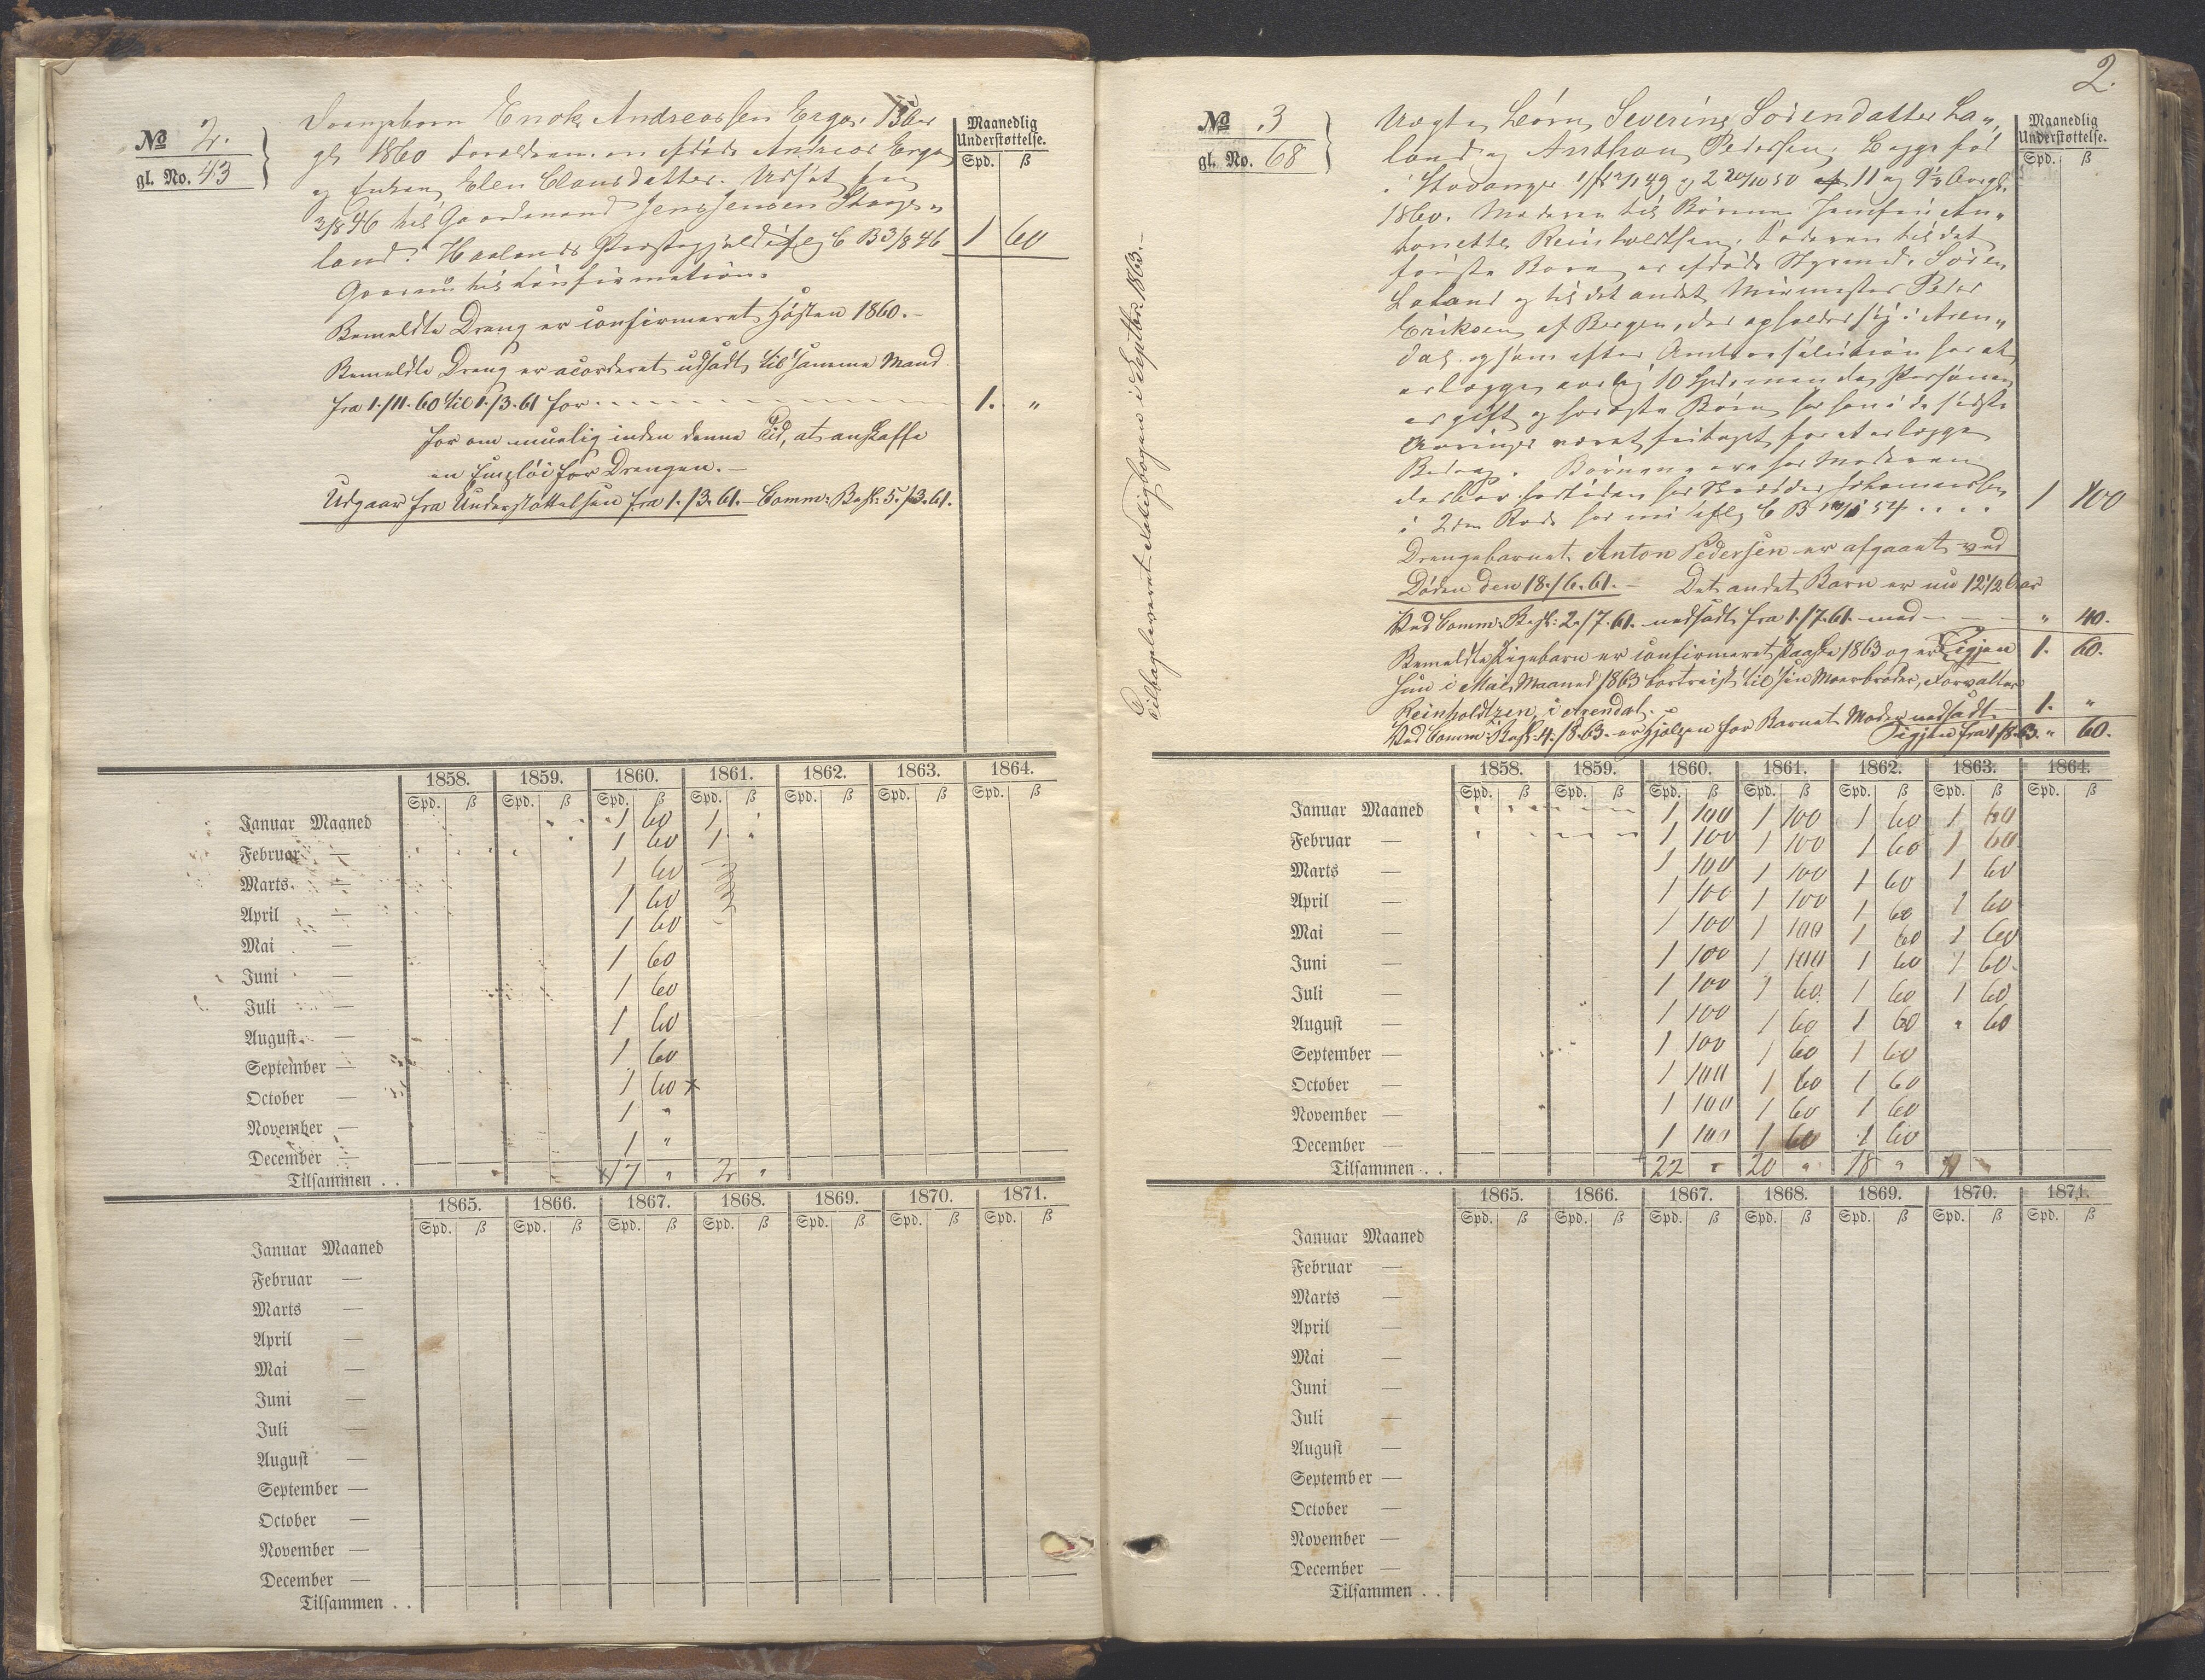 No 2.
gl. No. 43
Maanedlig
Understøttelse.
Spd. ß
Drengebarn Enok Andreassen Erga, 15 Aar
gl. 1860 Forældrene ere afdøde Andreas Erga
og Enken Elen Clausdatter. Udsat fra
3/8 46 til Gaardmand Jens Jensen
land i Haalands Præstegjeld iflg C B 3/8 46 1 60
til Confirmation.
Bemeldte Dreng er confirmeret Høsten 1860.-
Bemeldte Dreng er acorderet udsadt til samme Mand
fra 1./11.60 til 1./3.61 for - - - - - - 1. "
for om muelig inden denne Tid, at anskaffe
en Emploi for Drengen.-
Udgaar fra Understøttelsen fra 1./3.61.- Comm: Besl: 5./3.61.
1858. 1859. 1860. 1861. 1862. 1863. 1864.
Spd. ß Spd. ß Spd. ß Spd. ß Spd. ß Spd. ß Spd. ß
Januar Maaned 1 60 1 "
Februar — 1 60 1 "
Marts — 1 60
April — 1 60
Mai — 1 60
Juni — 1 60
Juli — 1 60
August — 1 60
September — 1 60
October — 1 60 x
November — 1 "
December — 1 "
Tilsammen . . x17 " 2 "
1865. 1866. 1867. 1868. 1869. 1870. 1871.
Spd. ß Spd. ß Spd. ß Spd. ß Spd. ß Spd. ß Spd. ß
Januar Maaned
Februar —
Marts —
April —
Mai —
Juni —
Juli —
August —
September —
October —
November —
December —
Tilsammen . .
2.
Tilbageleveret i Septbr. 1863.-
No 3
gl. No. 68
Maanedlig
Understøttelse.
Spd. ß
Uægte Børn, Severine Sørendatter La„
land og Anthon Pedersen, begge fød
i Stavanger 49 og 50 11 og 9½ Aar gl.
1860. Moderen til Børnene Jomfru An„
tonette Reinholdtsen. Faderen til det
første Barn er afdøde Styrmand Søren
Laland og til det andet Muurmester Peder
Eriksen af Bergen, der opholder sig i Aren„
dal og som efter Amtsresolution har at
erlægge aarlig 10 Spd. men da Personen
er gift og har ægte Børn har han i de sidste
Aaringer været fritaget for at erlægge
Bidrag. Børnene ere hos Moderen
der bor for tiden hos Johannessen
i 2den Rode har nu iflg C B 54 . . . . 1 100
Drengebarnet Anton Pedersen er afgaaet ved
Døden den 18./6.61.- Det andet Barn er nu 12½ Aar
Ved Comm: Besl: 2./7.61. nedsadt fra 1./7.61. med - - - " 40.
Bemeldte Pigebarn er confirmeret Paaske 1863 og er Igjen 1. 60.
hun i Mai Maaned 1863 bortreist til sin Moerbroder, Forvalter
Reinholdtzen i Arendal.-
Ved Comm: Besl: 4./8.63. er Hjælpen for Barnets Moder nedsadt 1. "
Igjen fra 1/8.63. " 60.
1858. 1859. 1860. 1861. 1862. 1863. 1864.
Spd. ß Spd. ß Spd. ß Spd. ß Spd. ß Spd. ß Spd. ß
Januar Maaned 1 100 1 100 1 60 1 60
Februar — 1 100 1 100 1 60 1 60
Marts — 1 100 1 100 1 60 1 60
April — 1 100 1 100 1 60 1 60
Mai — 1 100 1 100 1 60 1 60
Juni — 1 100 1 100 1 60 1 60
Juli — 1 100 1 60 1 60 1 60
August — 1 100 1 60 1 60 " 60
September — 1 100 1 60 1 60
October — 1 100 1 60 1 60
November — 1 100 1 60 1 60
December — 1 100 1 60 1 60
Tilsammen . . 22 " 20 " 18 " 11 "
1865. 1866. 1867. 1868. 1869. 1870. 1871.
Spd. ß Spd. ß Spd. ß Spd. ß Spd. ß Spd. ß Spd. ß
Januar Maaned
Februar —
Marts —
April —
Mai —
Juni —
Juli —
August —
September —
October —
November —
December —
Tilsammen . .